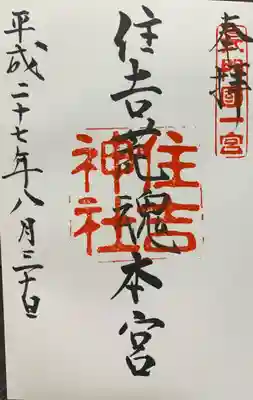 奉拝
長門國一宮
住吉荒魂本宮
住吉
神社
平成二十七年八月三十日